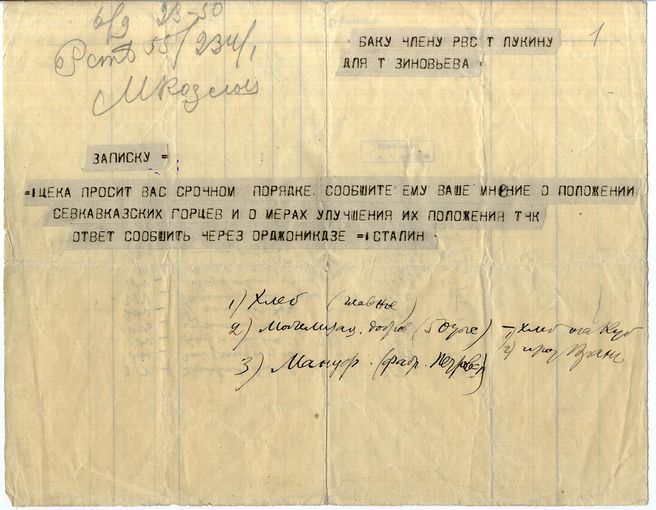 6/9 23-50
55/234/1
МКозлов
1
БАКУ ЧЛЕНУ РВС Т ЛУКИНУ
ДЛЯ Т ЗИНОВЬЕВА =
ЗАПИСКУ =
=1ЦЕКА ПРОСИТ ВАС СРОЧНОМ ПОРЯДКЕ. СООБШИТЕ ЕМУ ВАШЕ МНЕНИЕ О ПОЛОЖЕНИИ
СЕВКАВКАЗСКИХ ГОРЦЕВ И О МЕРАХ УЛУЧШЕНИЯ ИХ ПОЛОЖЕНИЯ ТЧК
ОТВЕТ СООБШИТЬ ЧЕРЕЗ ОРДЖОНИКДЗЕ =1СТАЛИН
1) Хлеб (главное)
2) добров (50 тыс) – 1) Хлеб на Куб
2)
3) Мануф. (фабр.